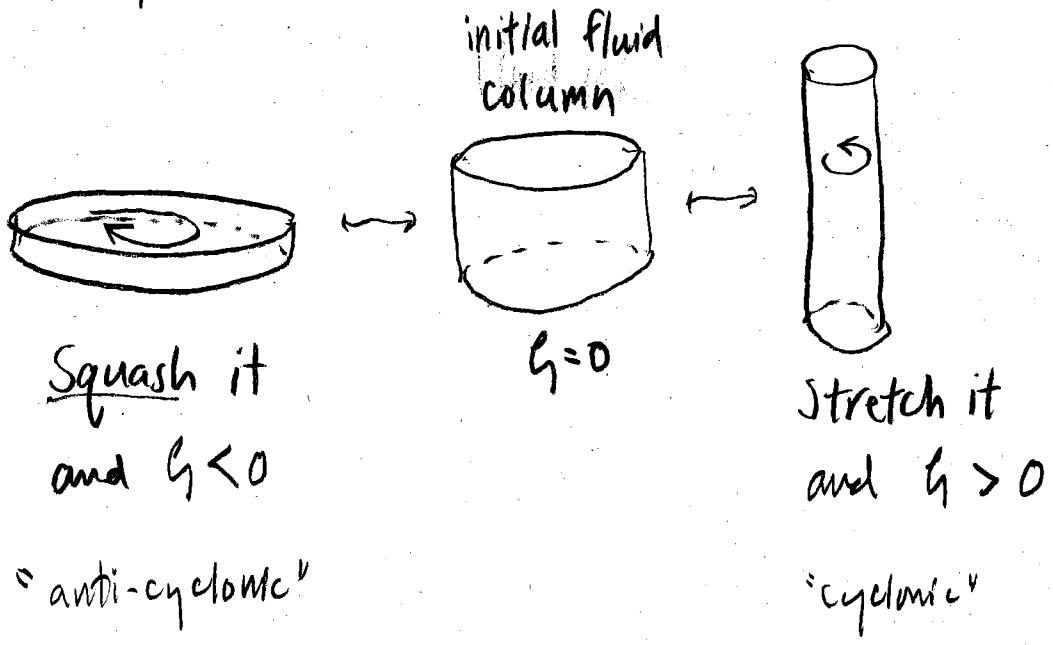 initial fluid
column
ζ=0
Squash it
and ζ<0
"anti-cyclonic"
Stretch it
and ζ > 0
"cyclonic"